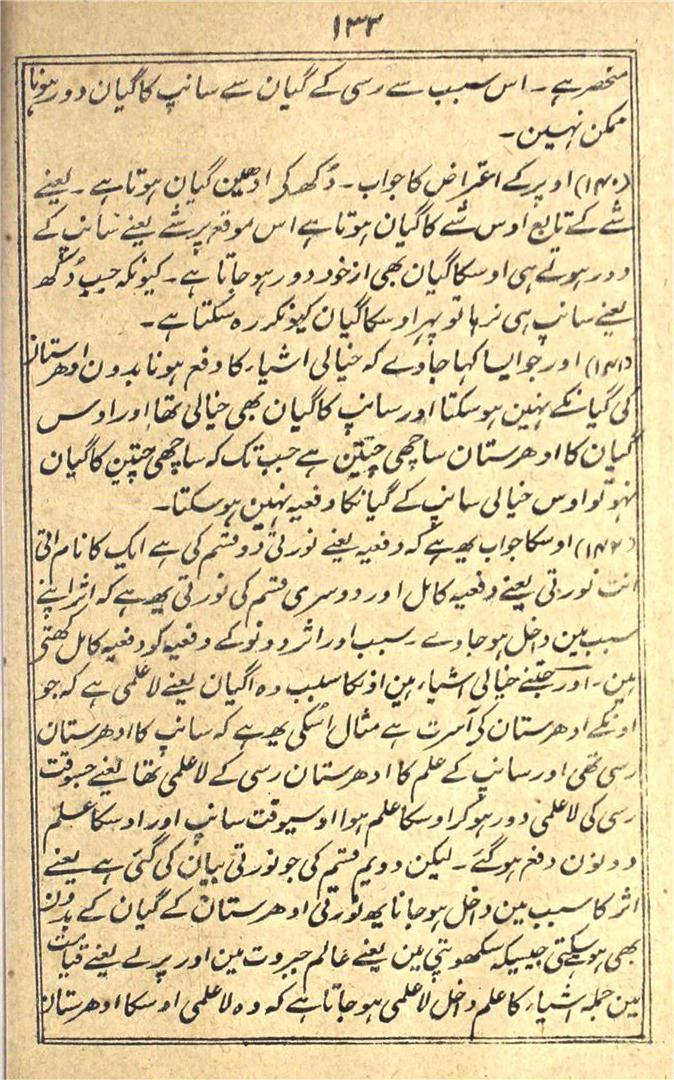 ۱۳۳
منحصر ہے ۔ اس سبب سے رسی کے گیان سے سانپ کا گیان دور ہونا
ممکن نہین ۔
(۱۴۰) اوپر کے اعتراض کا جواب ۔ دُکھ کی ادھین گیان ہوتا ہے ۔ یعنے
شے کے تابع اوس شے کا گیان ہوتا ہے اس موقع پر شے یعنے سانپ کے
دور ہوتے ہی اوسکا گیان بھی از خود دور ہو جاتا ہے ۔ کیونکہ جب دُکھ
یعنے سانپ ہی نرہا تو پہر اوسکا گیان کیونکر رہ سکتا ہے ۔
(۱۴۱) اور جو ایسا کہا جاوے کہ خیالی اشیاء کا دفع ہونا بدون ادھرستان
کی گیانکے نہین ہو سکتا اور سانپ کا گیان بھی خیالی تھا اور اوس
گیان کا ادھرستان ساچھی چیتن ہے جب تک کہ ساچھی چیتن کا گیان
نہو تو اوس خیالی سانپ کے گیانکا دفعیہ نہین ہو سکتا ۔
(۱۴۲) اوسکا جواب یہ ہے کہ دفعیہ یعنے نورتی دو قسم کی ہے ایک کا نام اتی
انت نورتی یعنے دفعیہ کامل اور دوسری قسم کی نورتی یہ ہے کہ اثر اپنے
سبب مین داخل ہو جاوے ۔ سبب اور اثر دونو کے دفعیہ کو دفعیہ کامل کہتی
ہین ۔ اور جتنے خیالی اشیاء ہین اونکا سبب وہ اگیان یعنے لاعلمی ہے کہ جو
اونکے ادھرستان کی آسرت ہے مثال اسکی یہ ہے کہ سانپ کا ادھرستان
رسی تھی اور سانپ کے علم کا ادھرستان رسی کے لاعلمی تھا یعنے جسوقت
رسی کی لاعلمی دور ہو کر اوسکا علم ہوا اوسیوقت سانپ اور اوسکا علم
دونون دفع ہو گئے ۔ لیکن دویم قسم کی جو نورتی بیان کی گئی ہے یعنے
اثر کا سبب مین داخل ہو جانا یہ نورتی ادھرستان کے گیان کے بدون
بھی ہو سکتی جیسیکہ سکھوپتی مین یعنے عالم جبروت مین اور پرلے یعنے قیامت
مین جملہ اشیاء کا علم داخل لاعلمی ہو جاتا ہے کہ وہ لاعلمی اوسکا ادھرستان